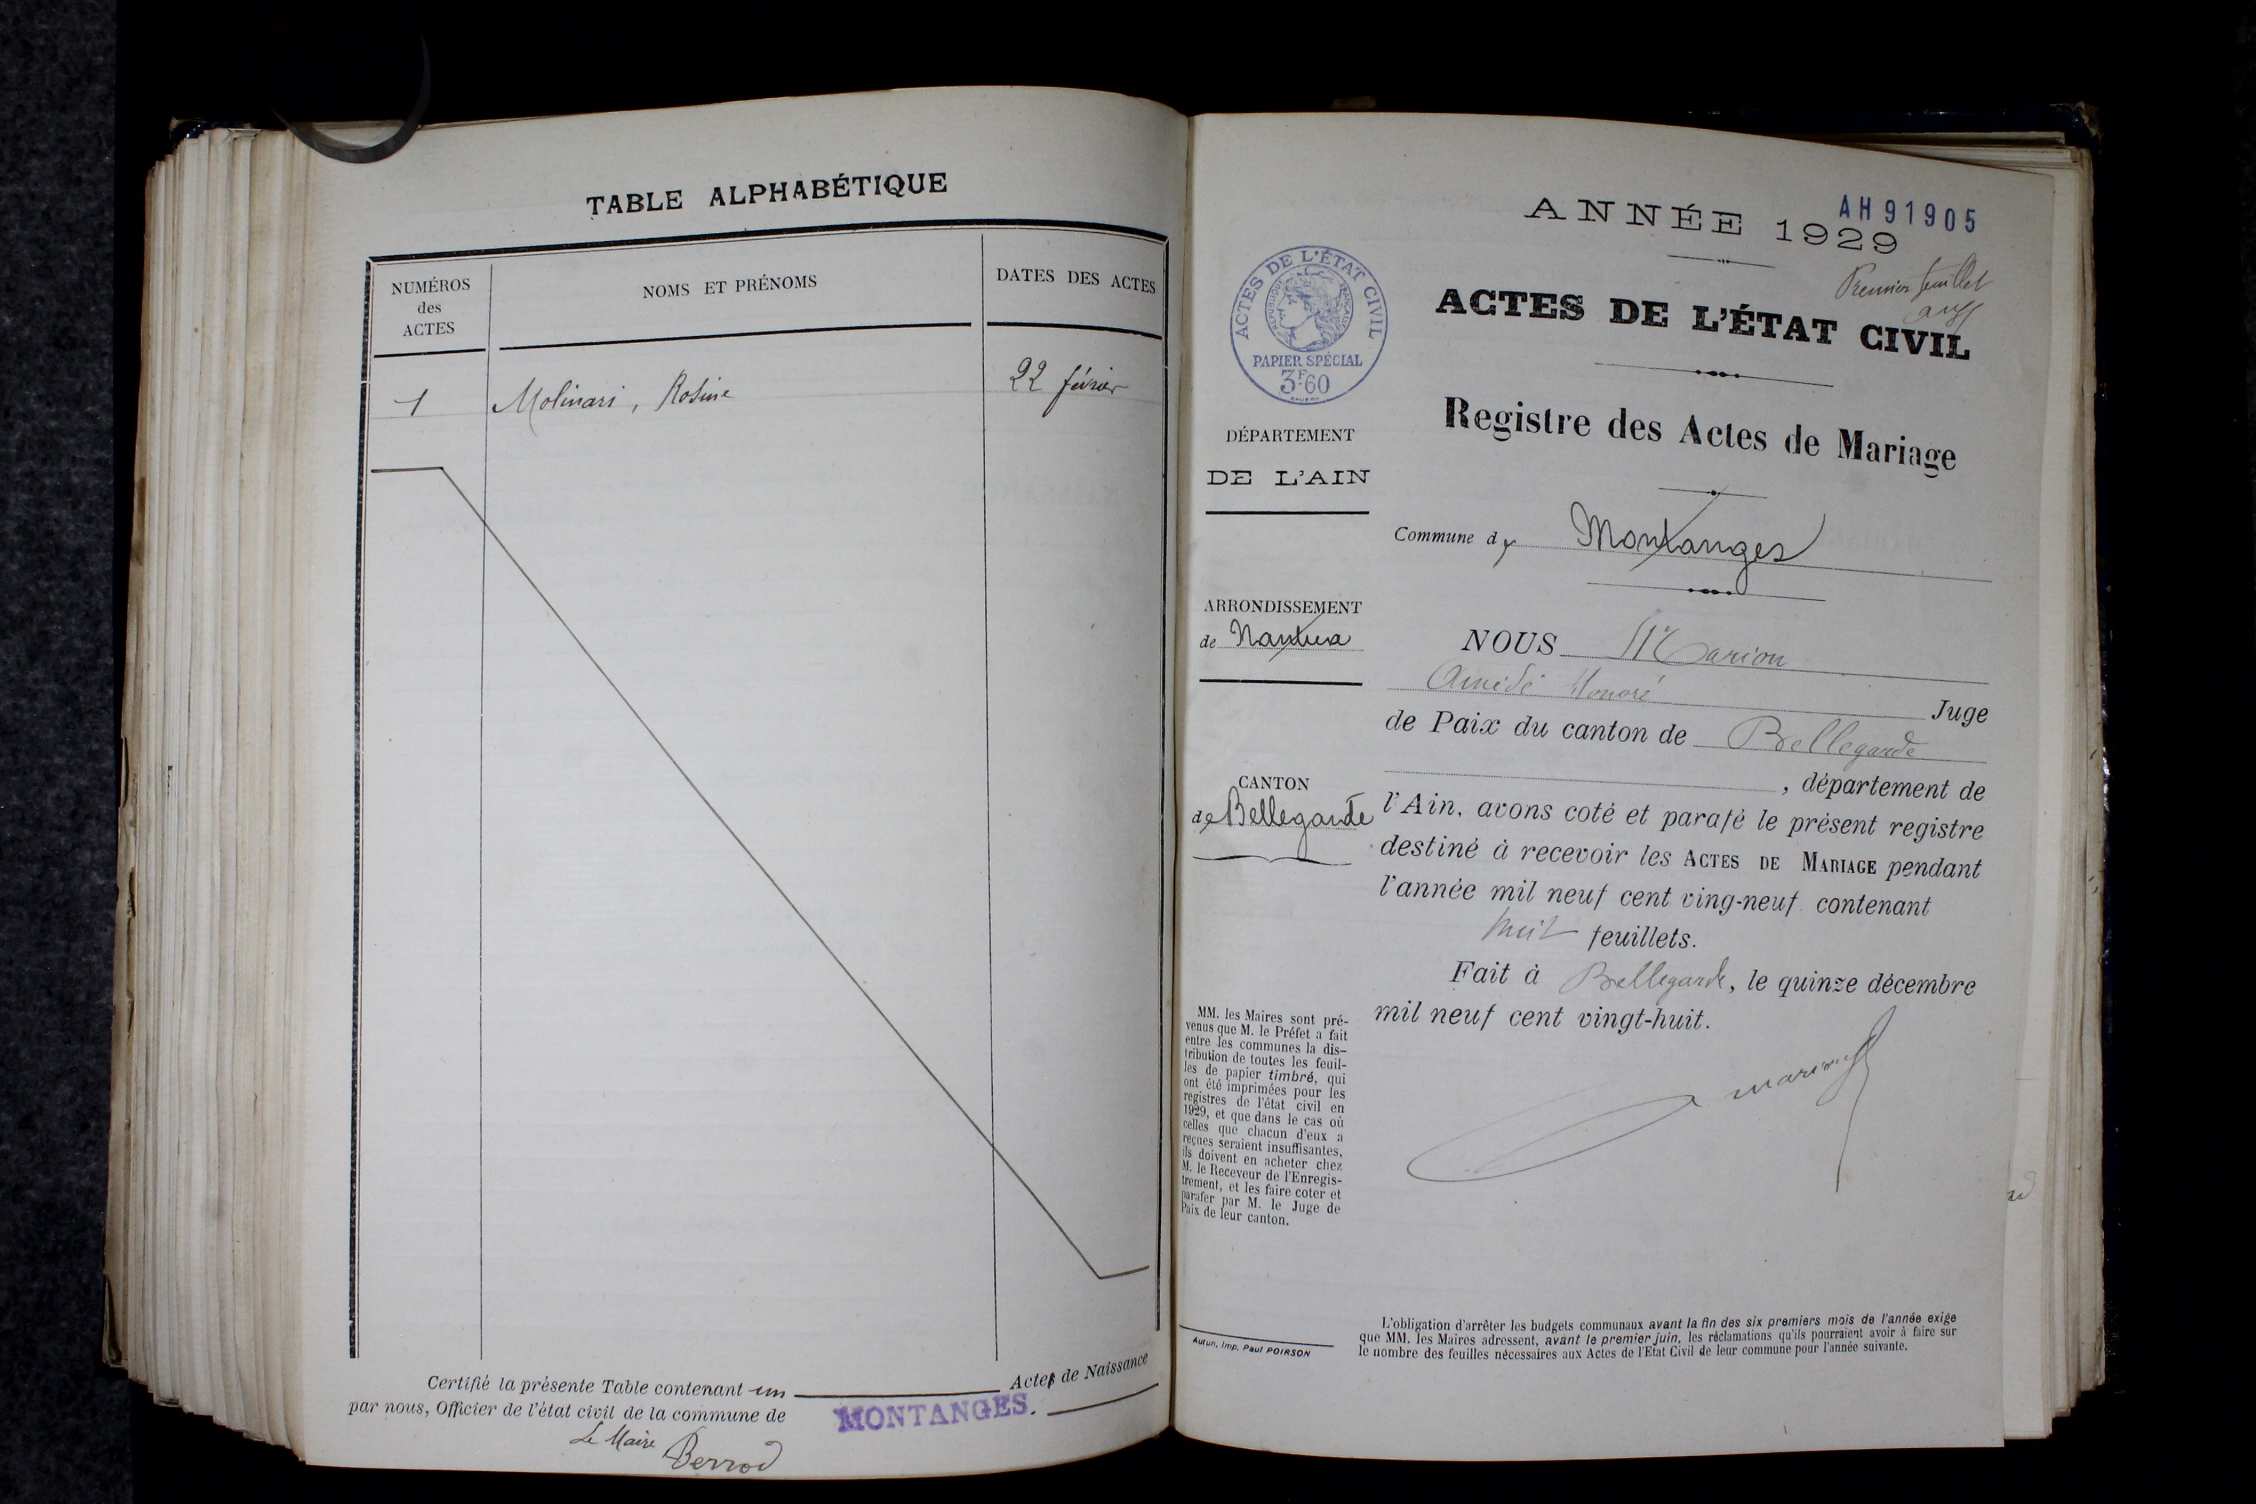 TABLE ALPHABÉTIQUE
NUMÉROS
des
ACTES
NOMS ET PRÉNOMS
DATES DES ACTES
1 Molinari, Rosine 22 février
Certifié la présente Table contenant un Actes de Naissance
par nous, Officier de l'état civil de la commune de MONTANGES.
Le Maire Berrod
AH 91905
ANNÉE 1929
Premier feuillet
ACTES DE L'ÉTAT CIVIL
Registre des Actes de Mariage
Commune de Montanges
NOUS Marion
Amédé Honoré Juge
de Paix du canton de Bellegarde
, département de
l'Ain, avons coté et parafé le présent registre
destiné à recevoir les ACTES DE MARIAGE pendant
l'année mil neuf cent ving-neuf contenant
huit feuillets.
Fait à Bellegarde, le quinze décembre
mil neuf cent vingt-huit.
Marion
ACTES DE L'ÉTAT CIVIL
RÉPUBLIQUE FRANÇAISE
PAPIER SPÉCIAL
3F60
DÉPARTEMENT
DE L'AIN
ARRONDISSEMENT
de Nantua
CANTON
de Bellegarde
MM. les Maires sont pré-
venus que M. le Préfet a fait
entre les communes la dis-
tribution de toutes les feuil-
les de papier timbré, qui
ont été imprimées pour les
registres de l'état civil en
1929, et que dans le cas où
celles que chacun d'eux a
reçues seraient insuffisantes,
ils doivent en acheter chez
M. le Receveur de l'Enregis-
trement, et les faire coter et
parafer par M. le Juge de
Paix de leur canton.
Autun, Imp. Paul POIRSON
L'obligation d'arrêter les budgets communaux avant la fin des six premiers mois de l'année exige
que MM. les Maires adressent, avant le premier juin, les réclamations qu'ils pourraient avoir à faire sur
le nombre des feuilles nécessaires aux Actes de l'Etat Civil de leur commune pour l'année suivante.